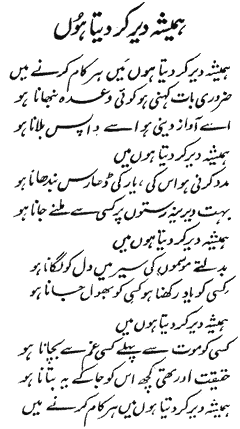 ہمیشہ دیر کر دیتا ہوں
ہمیشہ دیر کر دیتا ہوں میں ہر کام کرنے میں
ضروری بات کہنی ہو کوئی وعدہ نبھانا ہو
اسے آواز دینی ہو اسے واپس بلانا ہو
ہمیشہ دیر کر دیتا ہوں میں
مدد کرنی ہو اس کی، یار کی ڈھارس بندھانا ہو
بہت دیرینہ رستوں پر کسی سے ملنے جانا ہو
ہمیشہ دیر کر دیتا ہوں میں
بدلتے موسموں کی سیر میں دل کو لگانا ہو
کسی کو یاد رکھنا ہو کسی کو بھول جانا ہو
ہمیشہ دیر کر دیتا ہوں میں
کسی کو موت سے پہلے کسی غم سے بچانا ہو
حقیقت اور تھی کچھ اس کو جا کے یہ بتانا ہو
ہمیشہ دیر کر دیتا ہوں میں ہر کام کرنے میں